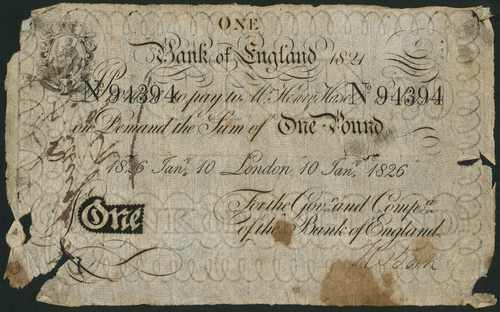 ONE
Bank of England 1821
Nº 94394 to pay to Mr. Henry Hase Nº 94394
on Demand the Sum of One Pound
1826 Jany. 10 London 10 Jany. 1826
For the Govr. and Compa. of the Bank of England.
One